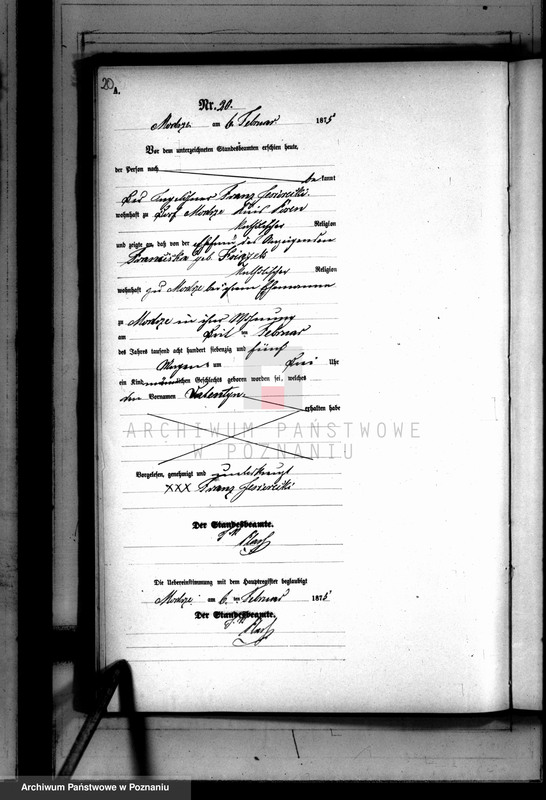 20
A.
Nr. 20.
Mordoze am 6 Februar 1875
Vor dem unterzeichneten Standesbeamten erschien heute,
der Person nach
be kannt
Franz
wohnhaft zu Dorf Mordoze Kreis
katholischer Religion
und zeigte an, daß von der Ehefrau des Anzeigenden
Franciska geb.
katholischer Religion
wohnhaft zu Mordoze bei ihrem Ehemanne
zu Mordoze in ihrer Wohnung
am Februar
des Jahres tausend acht hundert siebenzig und fünf
Morgens um Drei Uhr
ein Kind männlichen Geschlechts geboren worden sei, welches
den Vornamen Valentyn
erhalten habe
ARCHIWUM PAŃSTWOWE
W POZNANIU
Vorgelesen, genehmigt und unterkreuzt
XXX Franz
Der Standesbeamte.
Die Uebereinstimmung mit dem Hauptregister beglaubigt
Mordoze am 6 ten Februar 1875
Der Standesbeamte.
Archiwum Państwowe w Poznaniu